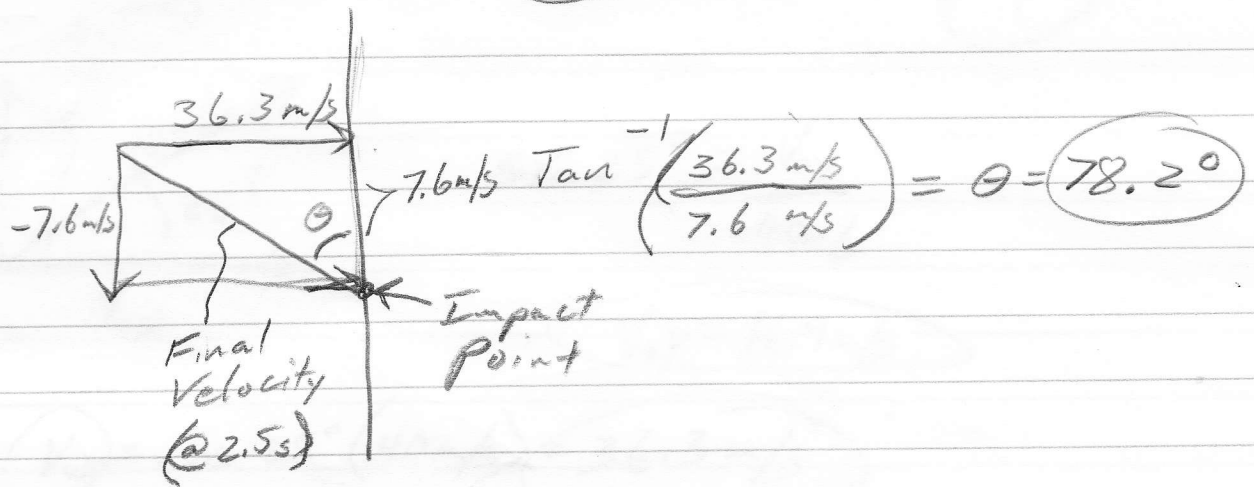 36.3 m/s
-7.6 m/s
θ
7.6 m/s
Tan⁻¹(36.3 m/s / 7.6 m/s) = θ = 78.2°
Impact
Point
Final
Velocity
(@ 2.5s)